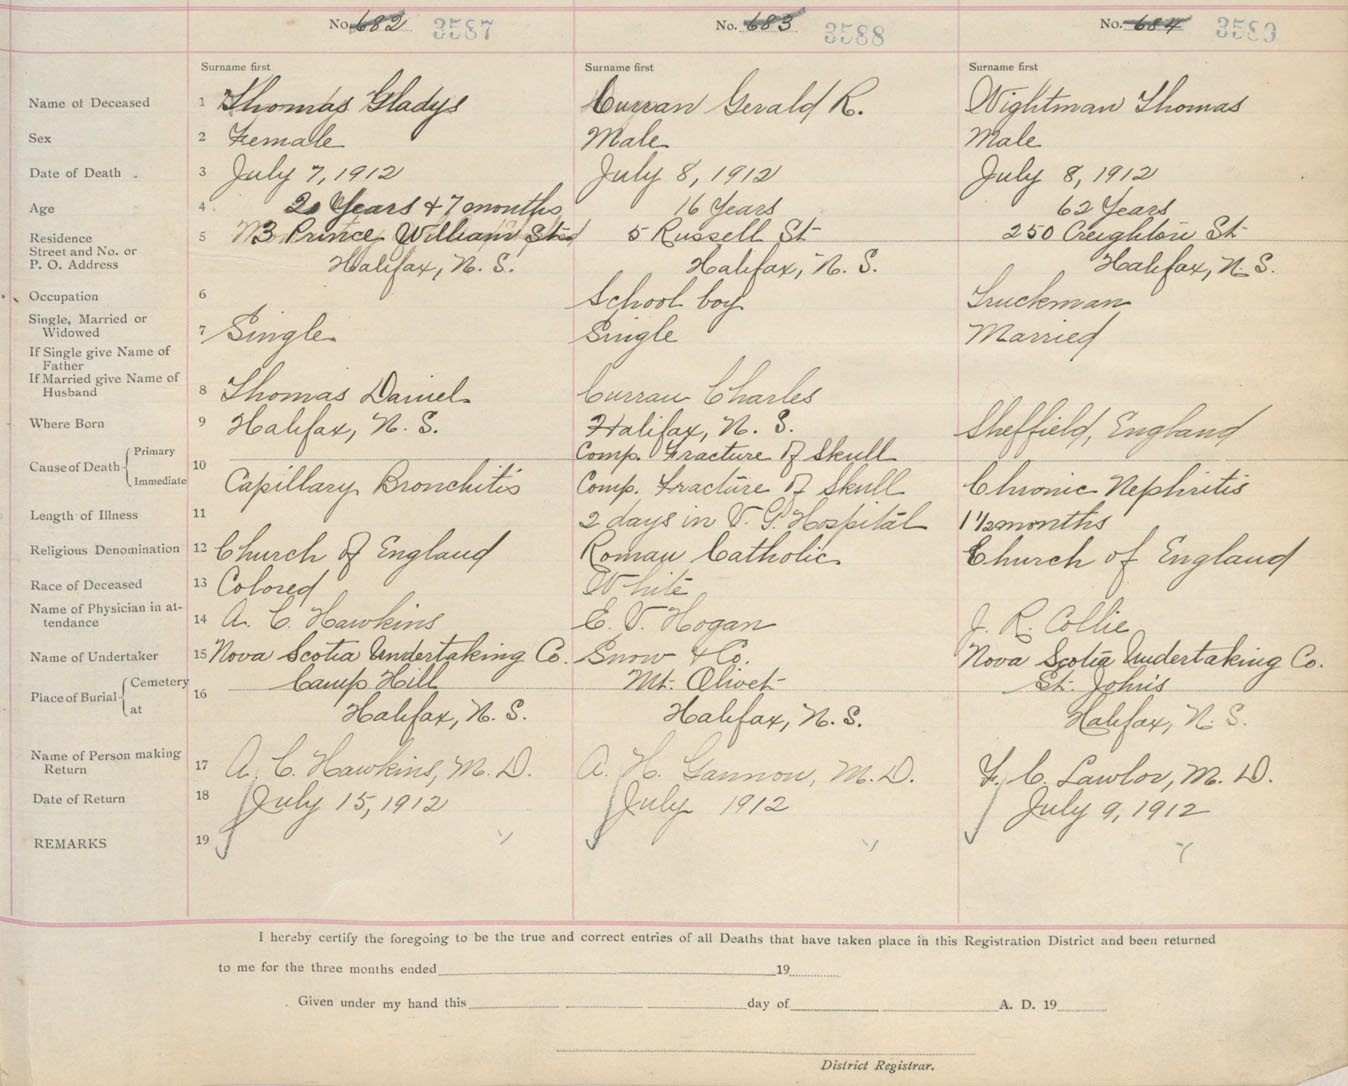 No. 682 3587 No. 683 3588 No. 684 3589
Surname first Surname first Surname first
Name of Deceased 1 Thomas Gladys Curran Gerald R. Wightman Thomas
Sex 2 Female Male Male
Date of Death 3 July 7, 1912 July 8, 1912 July 8, 1912
Age 4 2 Years & 7 months 16 Years 62 Years
Residence 5 3 Prince William St 5 Russell St 250 Creighton St
Street and No. or
P. O. Address Halifax, N. S. Halifax, N. S. Halifax, N. S.
Occupation 6 School boy Truckman
Single, Married or
Widowed 7 Single Single Married
If Single give Name of
Father
If Married give Name of
Husband 8 Thomas Daniel Curran Charles
Where Born 9 Halifax, N. S. Halifax, N. S. Sheffield, England
Cause of Death Primary 10 Comp. Fracture of Skull
Immediate Capillary Bronchitis Comp. Fracture of Skull Chronic Nephritis
Length of Illness 11 2 days in V. G. Hospital 1 1/2 months
Religious Denomination 12 Church of England Roman Catholic Church of England
Race of Deceased 13 Colored White
Name of Physician in at-
tendance 14 A. C. Hawkins E. V. Hogan J. R. Collie
Name of Undertaker 15 Nova Scotia Undertaking Co. Snow & Co. Nova Scotia Undertaking Co.
Place of Burial Cemetery 16 Camp Hill Mt. Olivet St. John's
at Halifax, N. S. Halifax, N. S. Halifax, N. S.
Name of Person making
Return 17 A. C. Hawkins, M. D. A. H. Gannon, M. D. F. C. Lawlor, M. D.
Date of Return 18 July 15, 1912 July 1912 July 9, 1912
REMARKS 19
I hereby certify the foregoing to be the true and correct entries of all Deaths that have taken place in this Registration District and been returned
to me for the three months ended 19
Given under my hand this day of A. D. 19
District Registrar.